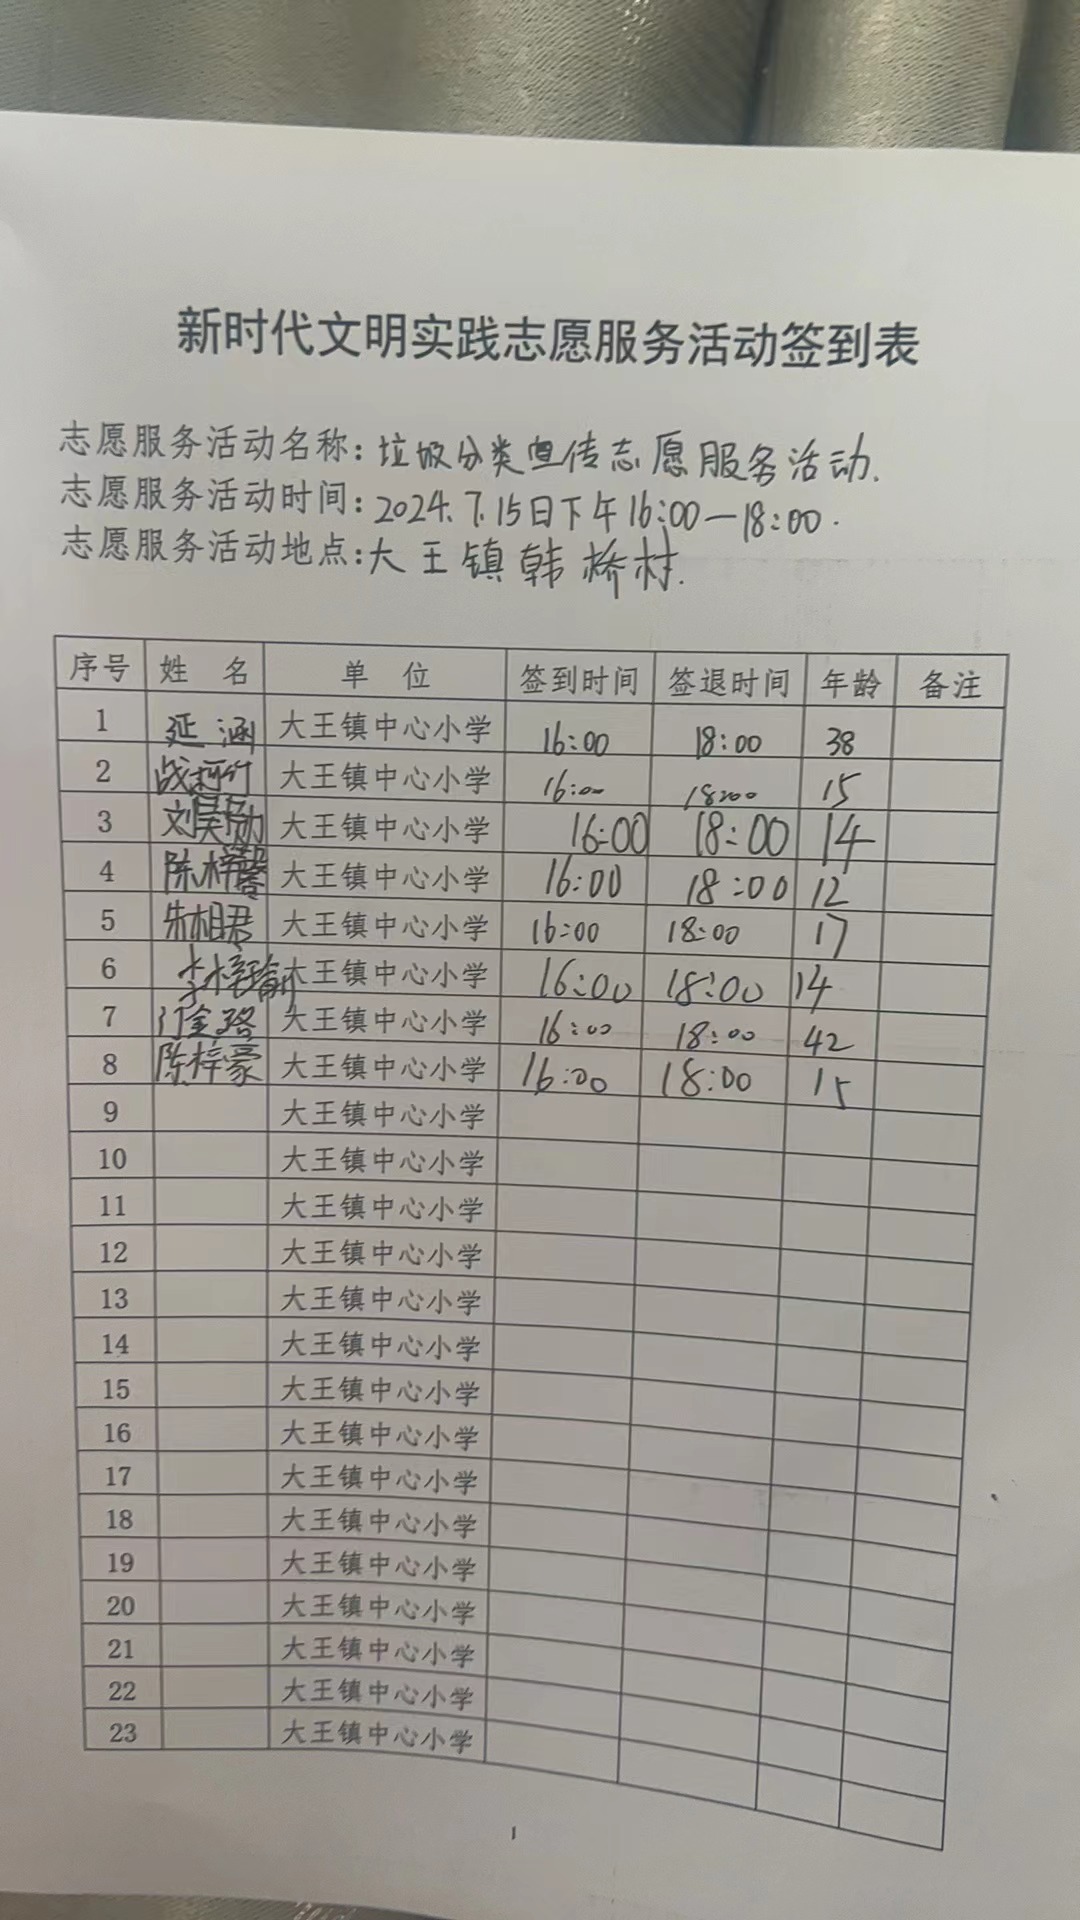 新时代文明实践志愿服务活动签到表
志愿服务活动名称:垃圾分类宣传志愿服务活动.
志愿服务活动时间:2024.7.15日下午16:00—18:00.
志愿服务活动地点:大王镇韩桥村.
序号 姓 名 单 位 签到时间 签退时间 年龄 备注
1 延涵 大王镇中心小学 16:00 18:00 38
2 战柯竹 大王镇中心小学 16:00 18:00 15
3 刘昊勋 大王镇中心小学 16:00 18:00 14
4 陈梓馨 大王镇中心小学 16:00 18:00 12
5 朱相君 大王镇中心小学 16:00 18:00 17
6 李梓瑜 大王镇中心小学 16:00 18:00 14
7 门金路 大王镇中心小学 16:00 18:00 42
8 陈梓豪 大王镇中心小学 16:00 18:00 15
9 大王镇中心小学
10 大王镇中心小学
11 大王镇中心小学
12 大王镇中心小学
13 大王镇中心小学
14 大王镇中心小学
15 大王镇中心小学
16 大王镇中心小学
17 大王镇中心小学
18 大王镇中心小学
19 大王镇中心小学
20 大王镇中心小学
21 大王镇中心小学
22 大王镇中心小学
23 大王镇中心小学
1